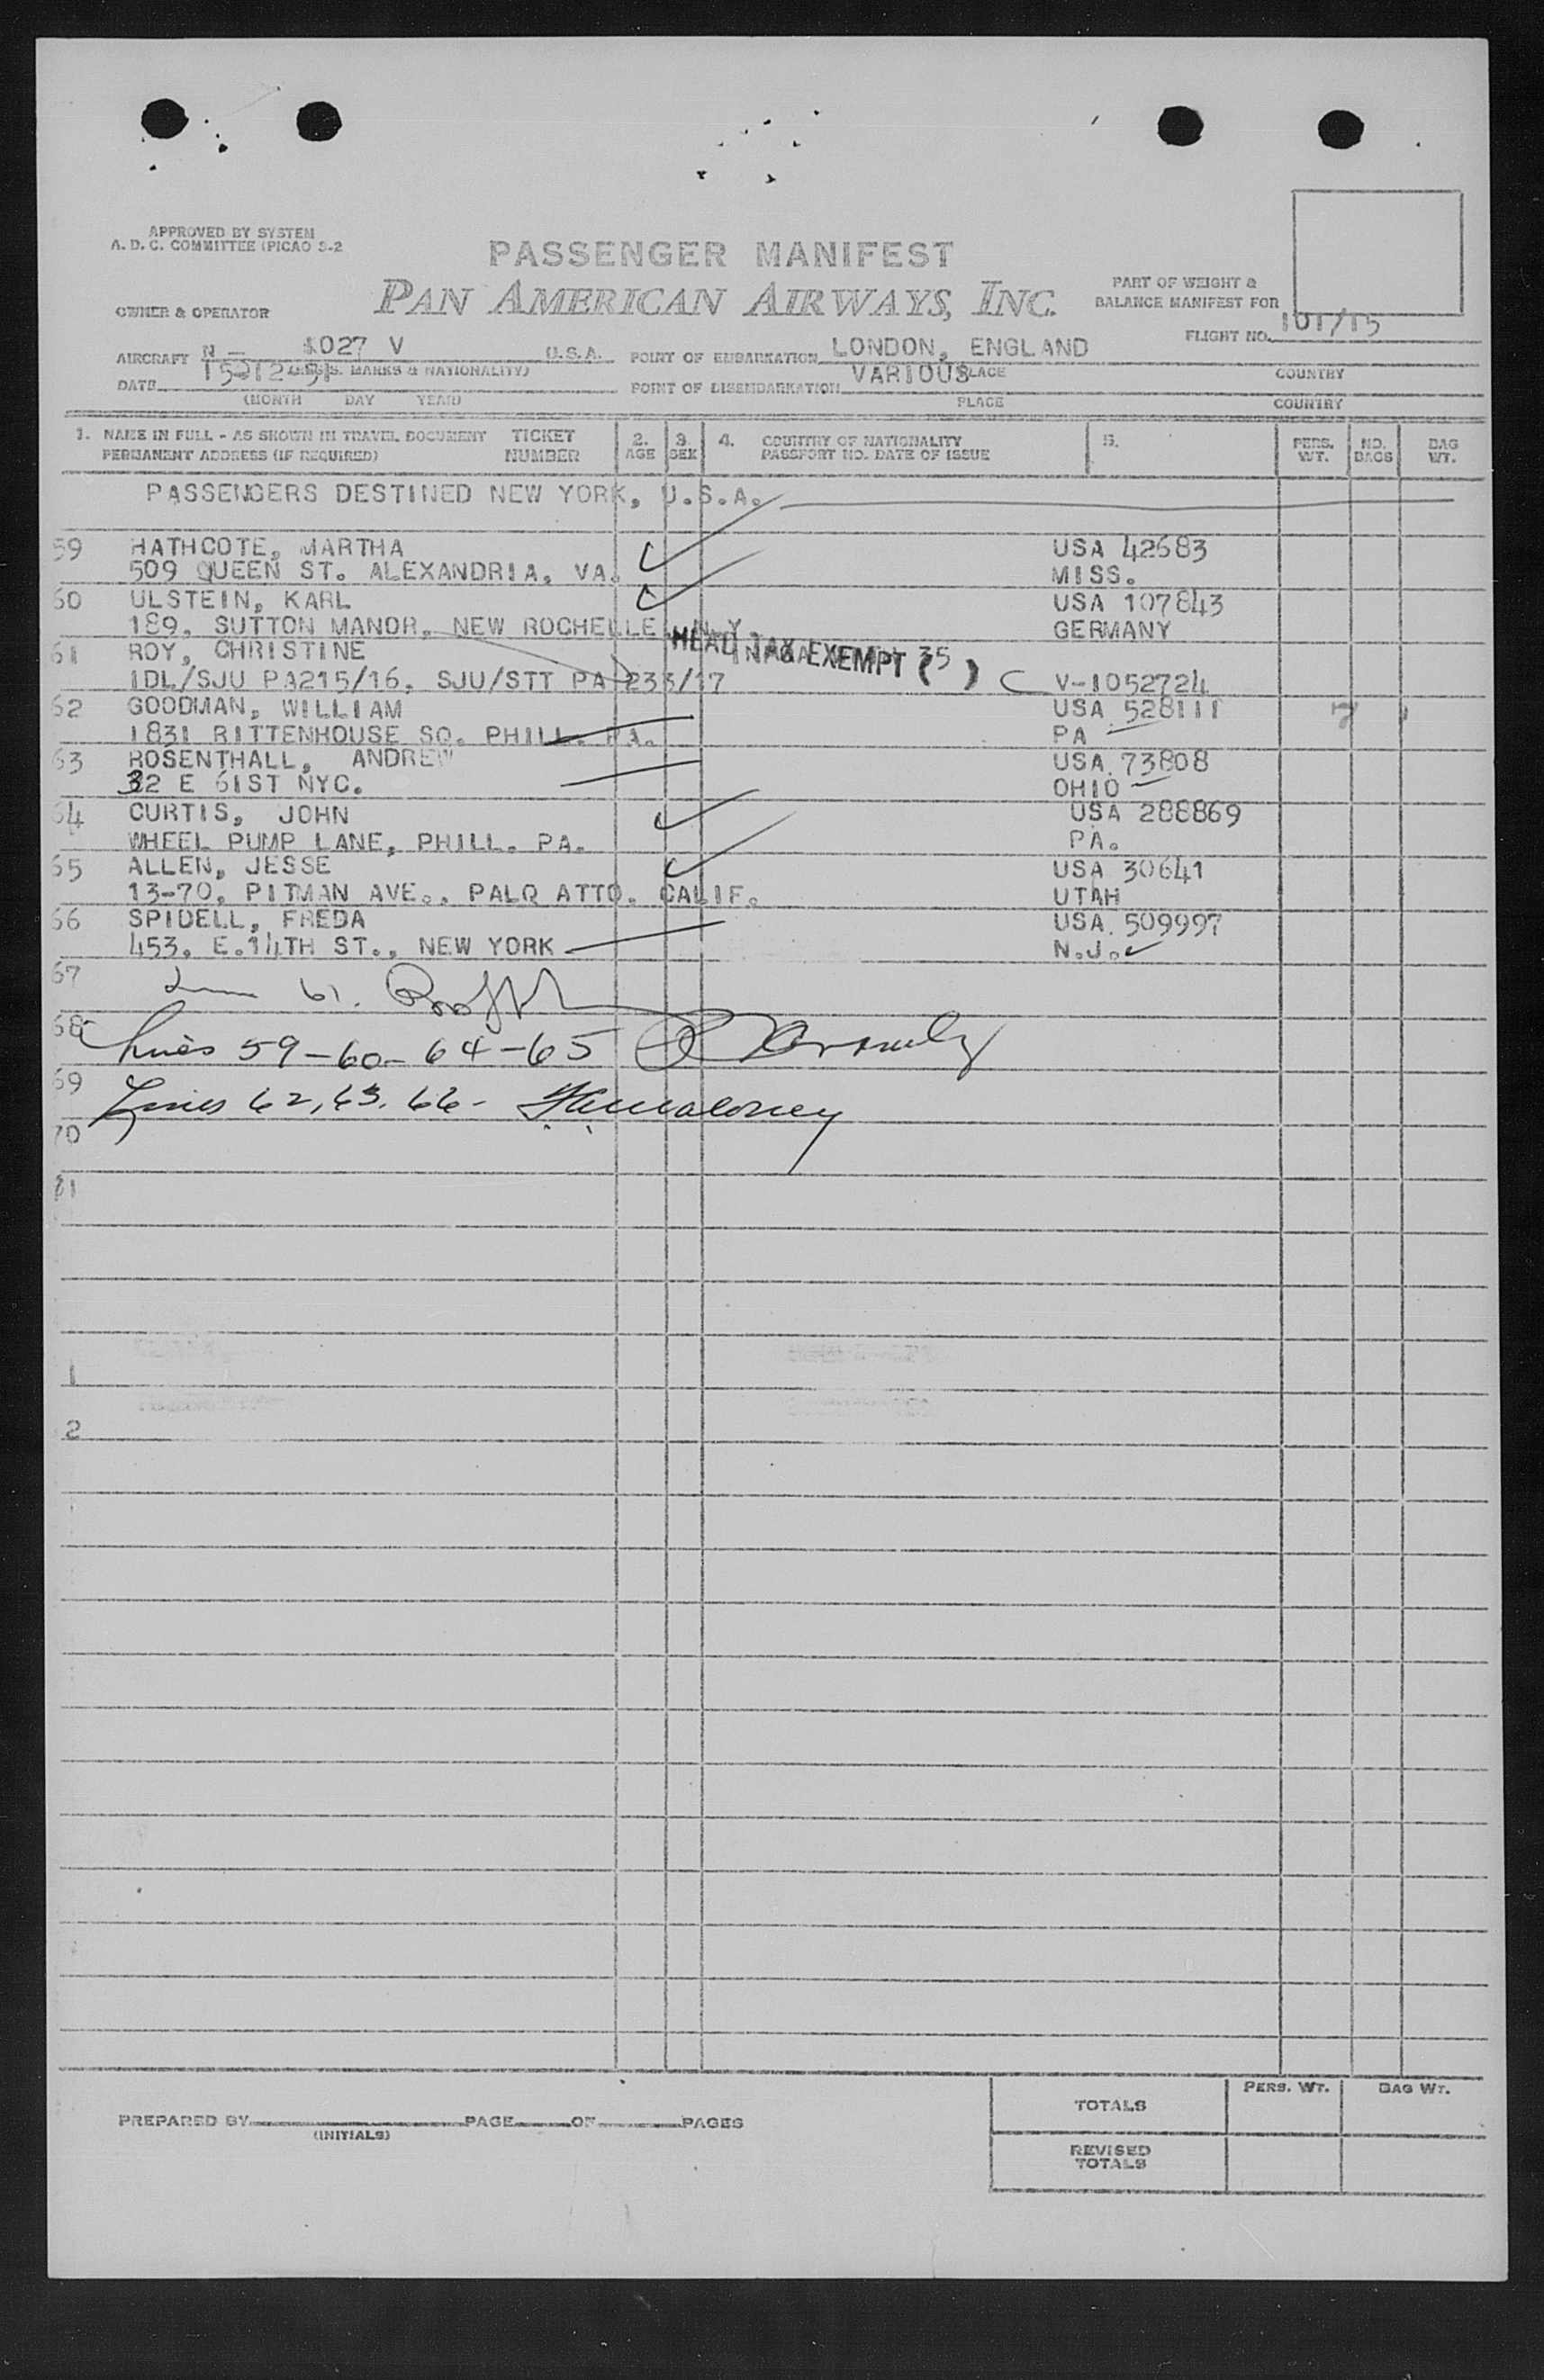 APPROVED BY SYSTEM
A. D. C. COMMITTEE (PICAO S-2
PASSENGER MANIFEST
PAN AMERICAN AIRWAYS, INC.
PART OF WEIGHT &
BALANCE MANIFEST FOR
OWNER & OPERATOR
FLIGHT NO. 101/15
AIRCRAFT N - 1027 V U.S.A. POINT OF EMBARKATION LONDON, ENGLAND
MARKS & NATIONALITY) PLACE COUNTRY
DATE 15-12-51 POINT OF DISEMBARKATION VARIOUS
(MONTH DAY YEAR) PLACE COUNTRY
1. NAME IN FULL - AS SHOWN IN TRAVEL DOCUMENT TICKET 2. 3. 4. COUNTRY OF NATIONALITY 5. PERS. NO. BAG
PERMANENT ADDRESS (IF REQUIRED) NUMBER AGE SEX PASSPORT NO. DATE OF ISSUE WT. BAGS WT.
PASSENGERS DESTINED NEW YORK, U.S.A.
59 HATHCOTE, MARTHA USA 42683
509 QUEEN ST. ALEXANDRIA, VA. MISS.
60 ULSTEIN, KARL USA 107843
189, SUTTON MANOR, NEW ROCHELLE, N.Y. GERMANY
61 ROY, CHRISTINE HEAD TAX EXEMPT ( 35 )
IDL/SJU PA215/16, SJU/STT PA 233/17 V-1052724
62 GOODMAN, WILLIAM USA 528111
1831 RITTENHOUSE SQ. PHILL. PA. PA
63 ROSENTHALL, ANDREW USA. 73808
32 E 61ST NYC. OHIO
64 CURTIS, JOHN USA 288869
WHEEL PUMP LANE, PHILL. PA. PA.
65 ALLEN, JESSE USA 30641
13-70, PITMAN AVE., PALO ATTO. CALIF. UTAH
66 SPIDELL, FREDA USA. 509997
453, E.14TH ST., NEW YORK N.J.
67 61.
68 Lines 59-60-64-65
69 Lines 62, 63. 66-
70
71
1
2
PREPARED BY PAGE OF PAGES
(INITIALS)
PERS. WT. BAG WT.
TOTALS
REVISED
TOTALS